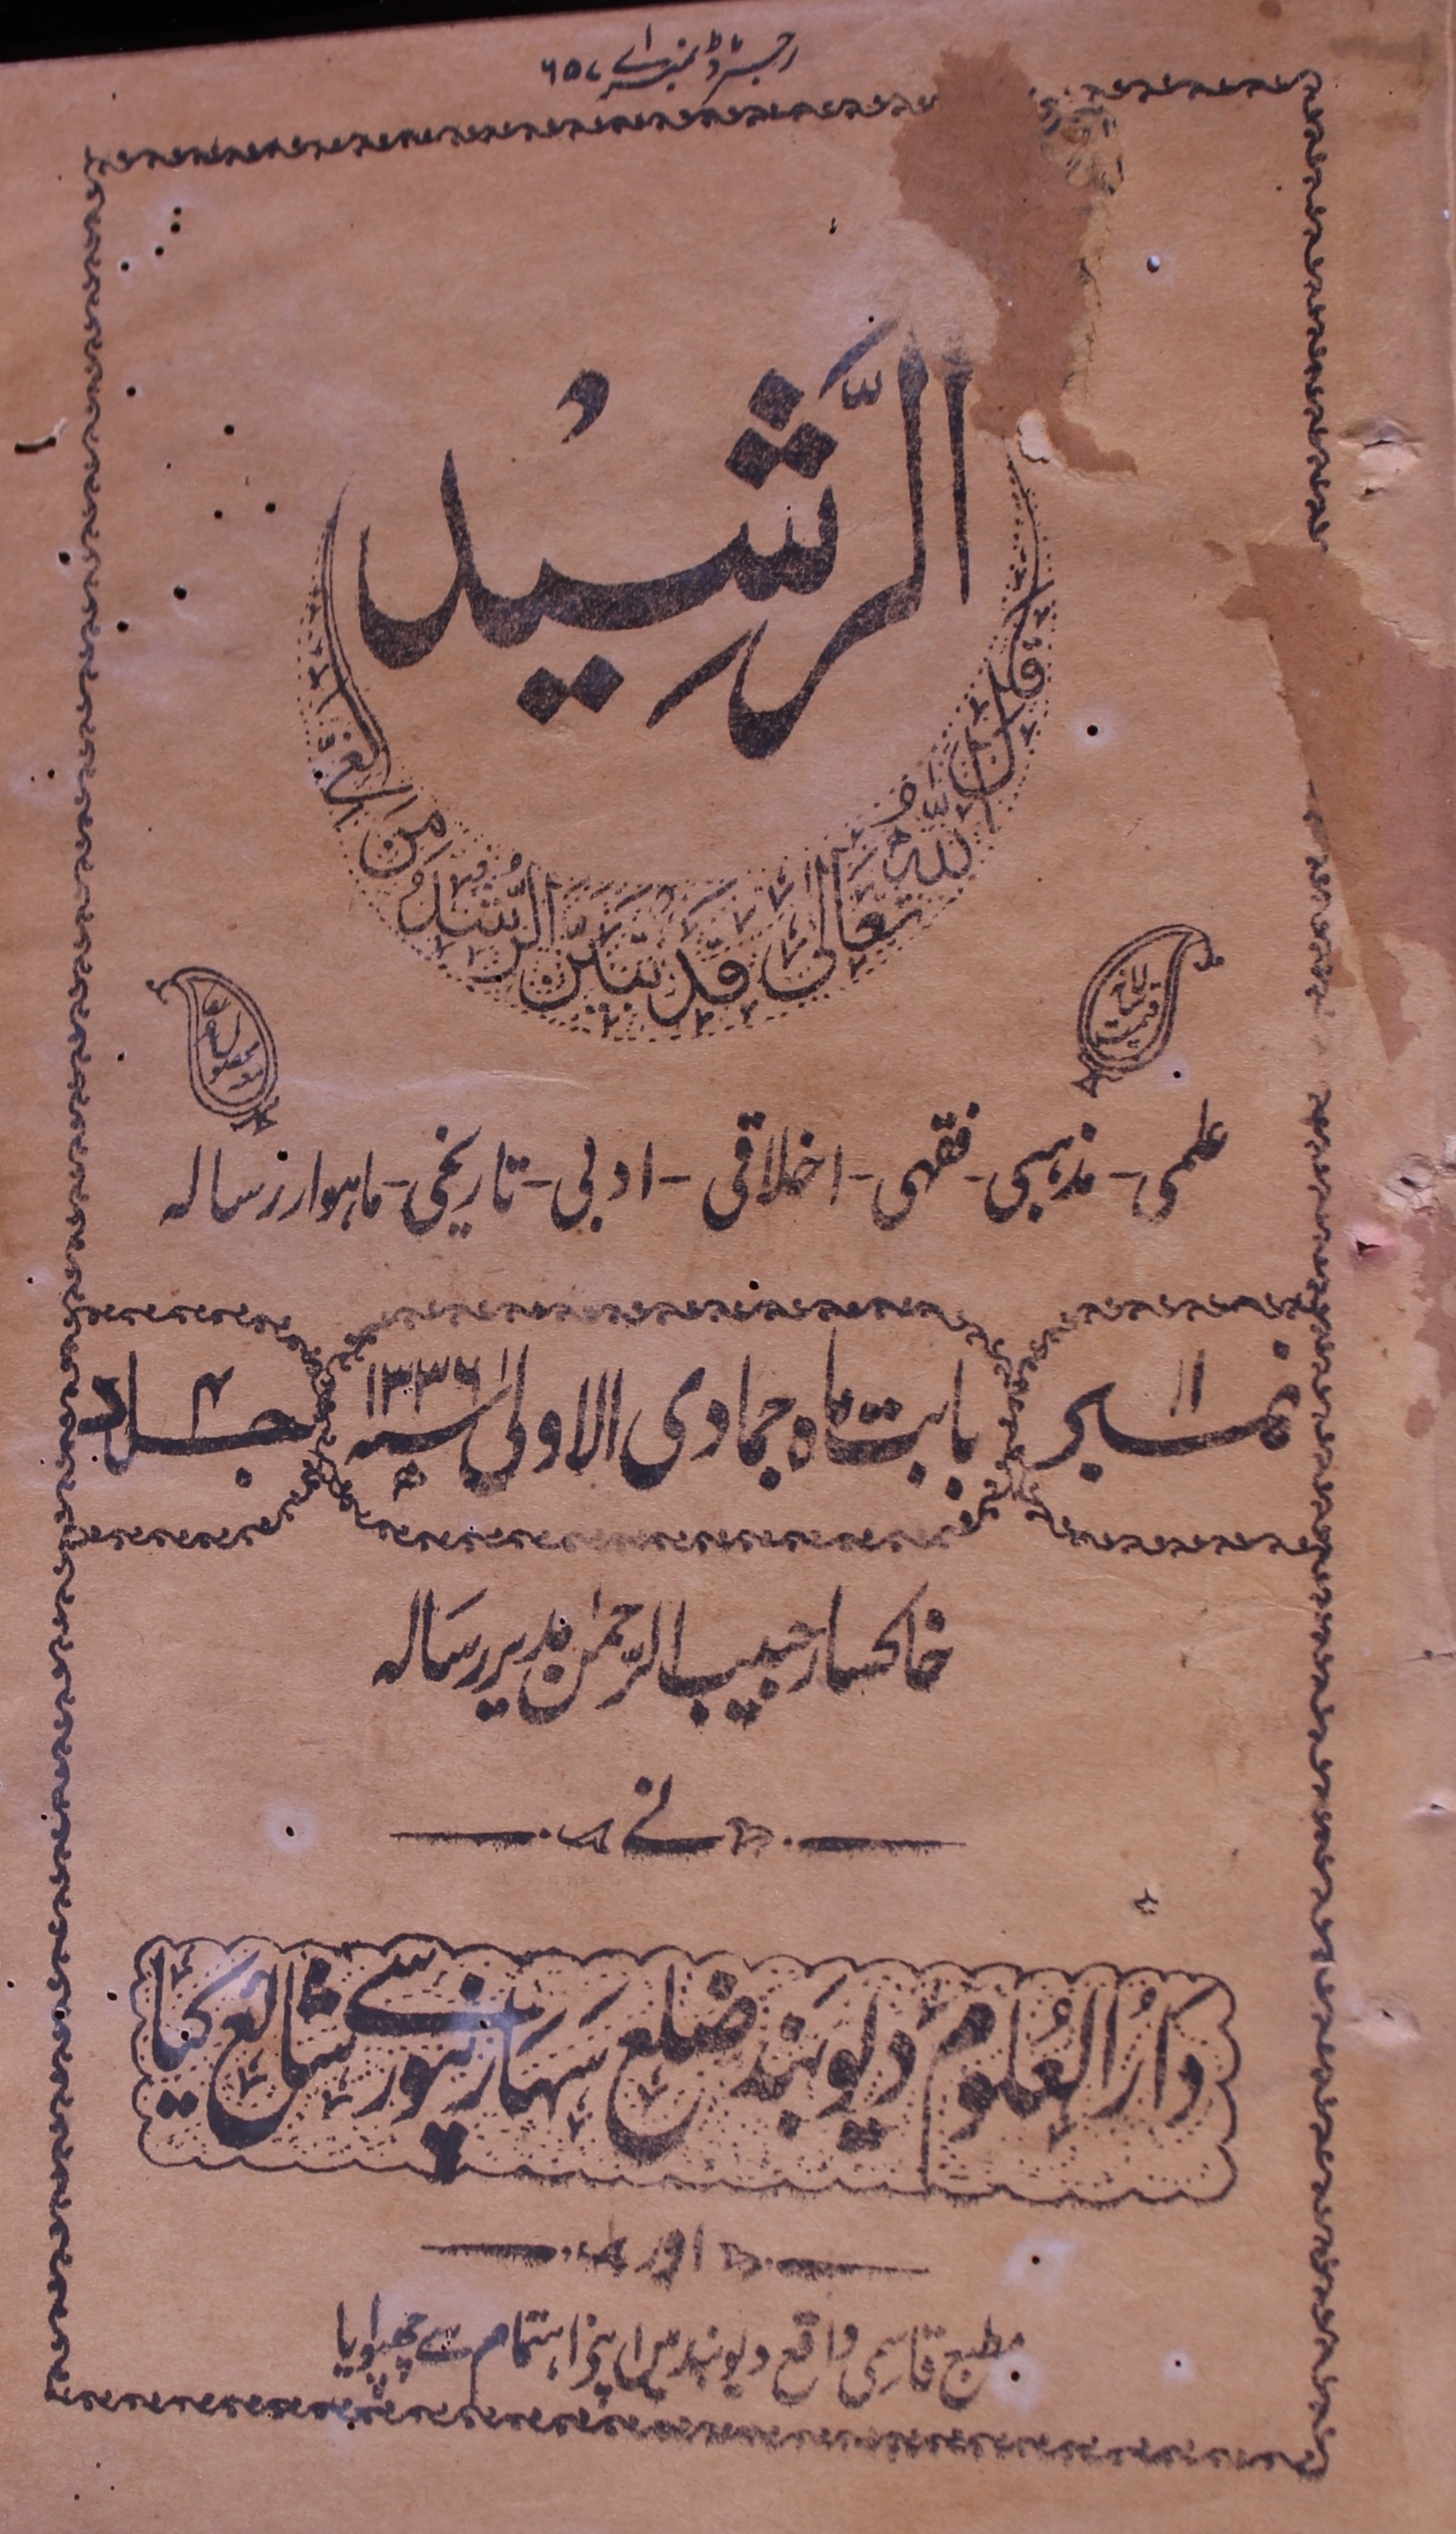 رجسٹرڈ نمبر اے ۶۵۷
الرَّشِیْد
قال اللّٰہُ تعالیٰ قَدْ تَبَیَّنَ الرُّشْدُ مِنَ الْغَیِّ
علمی - مذہبی - فقہی - اخلاقی - ادبی - تاریخی - ماہوار رسالہ
نمبر ۱۱
بابت ماہ جمادی الاولیٰ سنہ ۱۳۳۶ھ
جلد ۴
خاکسار حبیب الرحمٰن مدیر رسالہ
نے
دَارُ العُلوم دیوبند ضلع سہارنپور سے شائع کیا
اور
مطبع قاسمی واقع دیوبند میں اپنے اہتمام سے چھپوایا